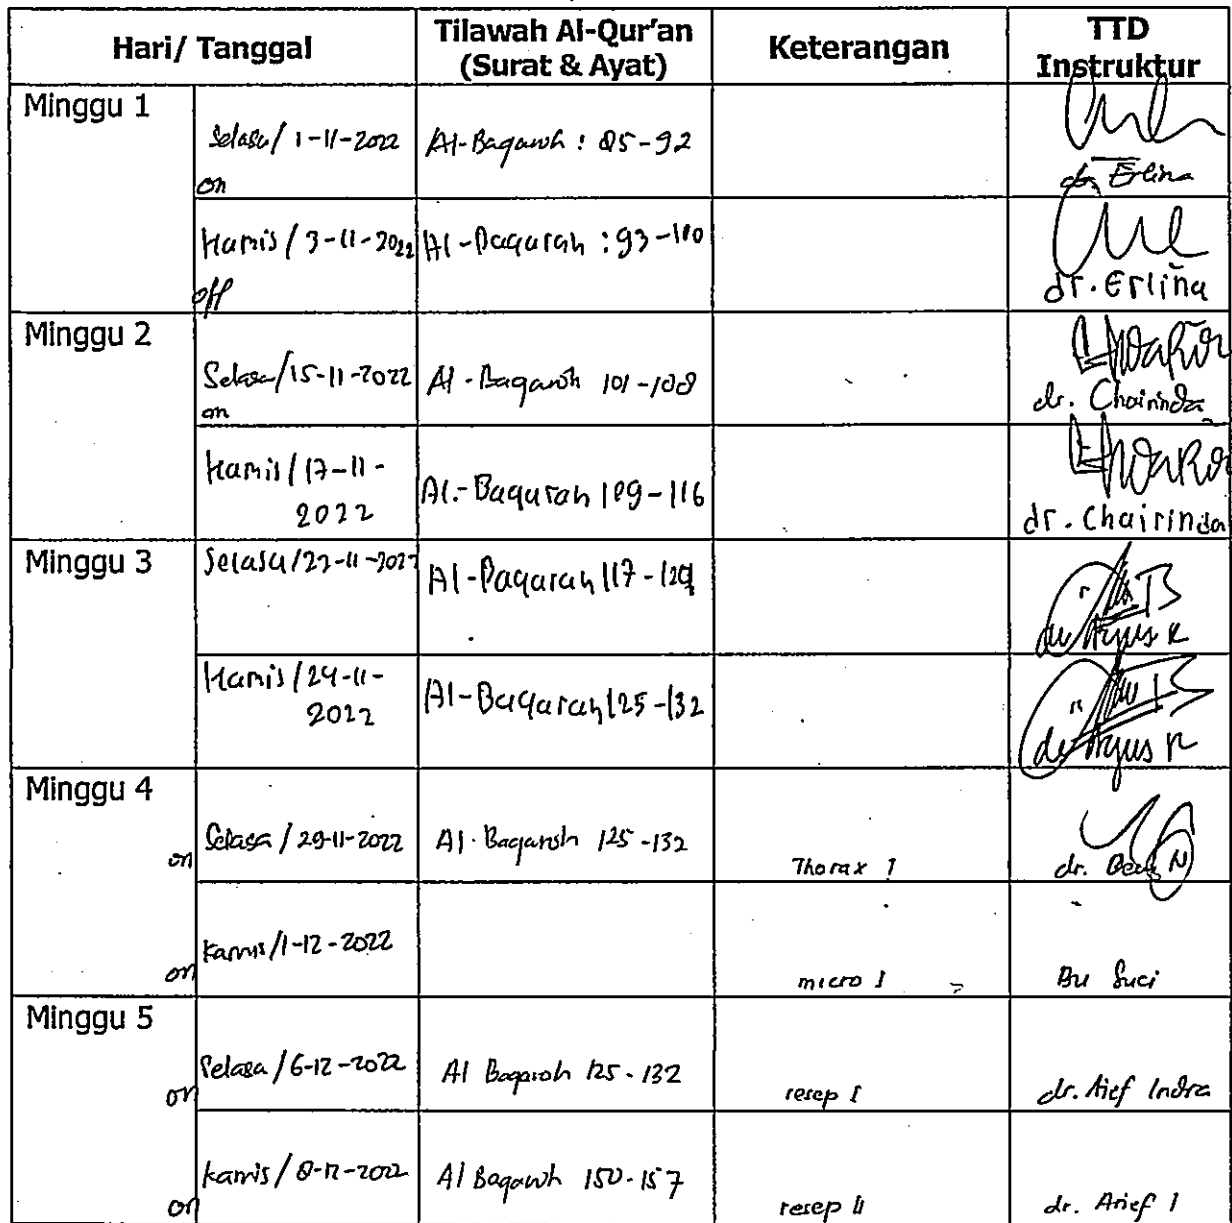 Hari/ Tanggal
Tilawah Al-Qur'an
(Surat & Ayat)
Keterangan
TTD
Instruktur
Minggu 1
Selasa/ 1-11-2022
on
Al-Baqarah : 85-92
dr. Erlina
Kamis / 3-11-2022
off
Al-Baqarah : 93-100
dr. Erlina
Minggu 2
Selasa/15-11-2022
on
Al-Baqarah 101-108
dr. Chairinda
Kamis / 17-11-
2022
Al-Baqarah 109-116
dr. Chairinda
Minggu 3
Selasa/22-11-2022
Al-Baqarah 117-124
dr Agus R
Kamis /24-11-
2022
Al-Baqarah 125-132
dr Agus R
Minggu 4
Selasa / 29-11-2022
on
Al-Baqarah 125-132
Thorax I
dr.
Kamis/1-12-2022
on
micro I
Bu Suci
Minggu 5
Selasa / 6-12-2022
on
Al Baqarah 125-132
resep I
dr. Arief Indra
Kamis / 8-12-2022
on
Al Baqarah 150-157
resep II
dr. Arief I